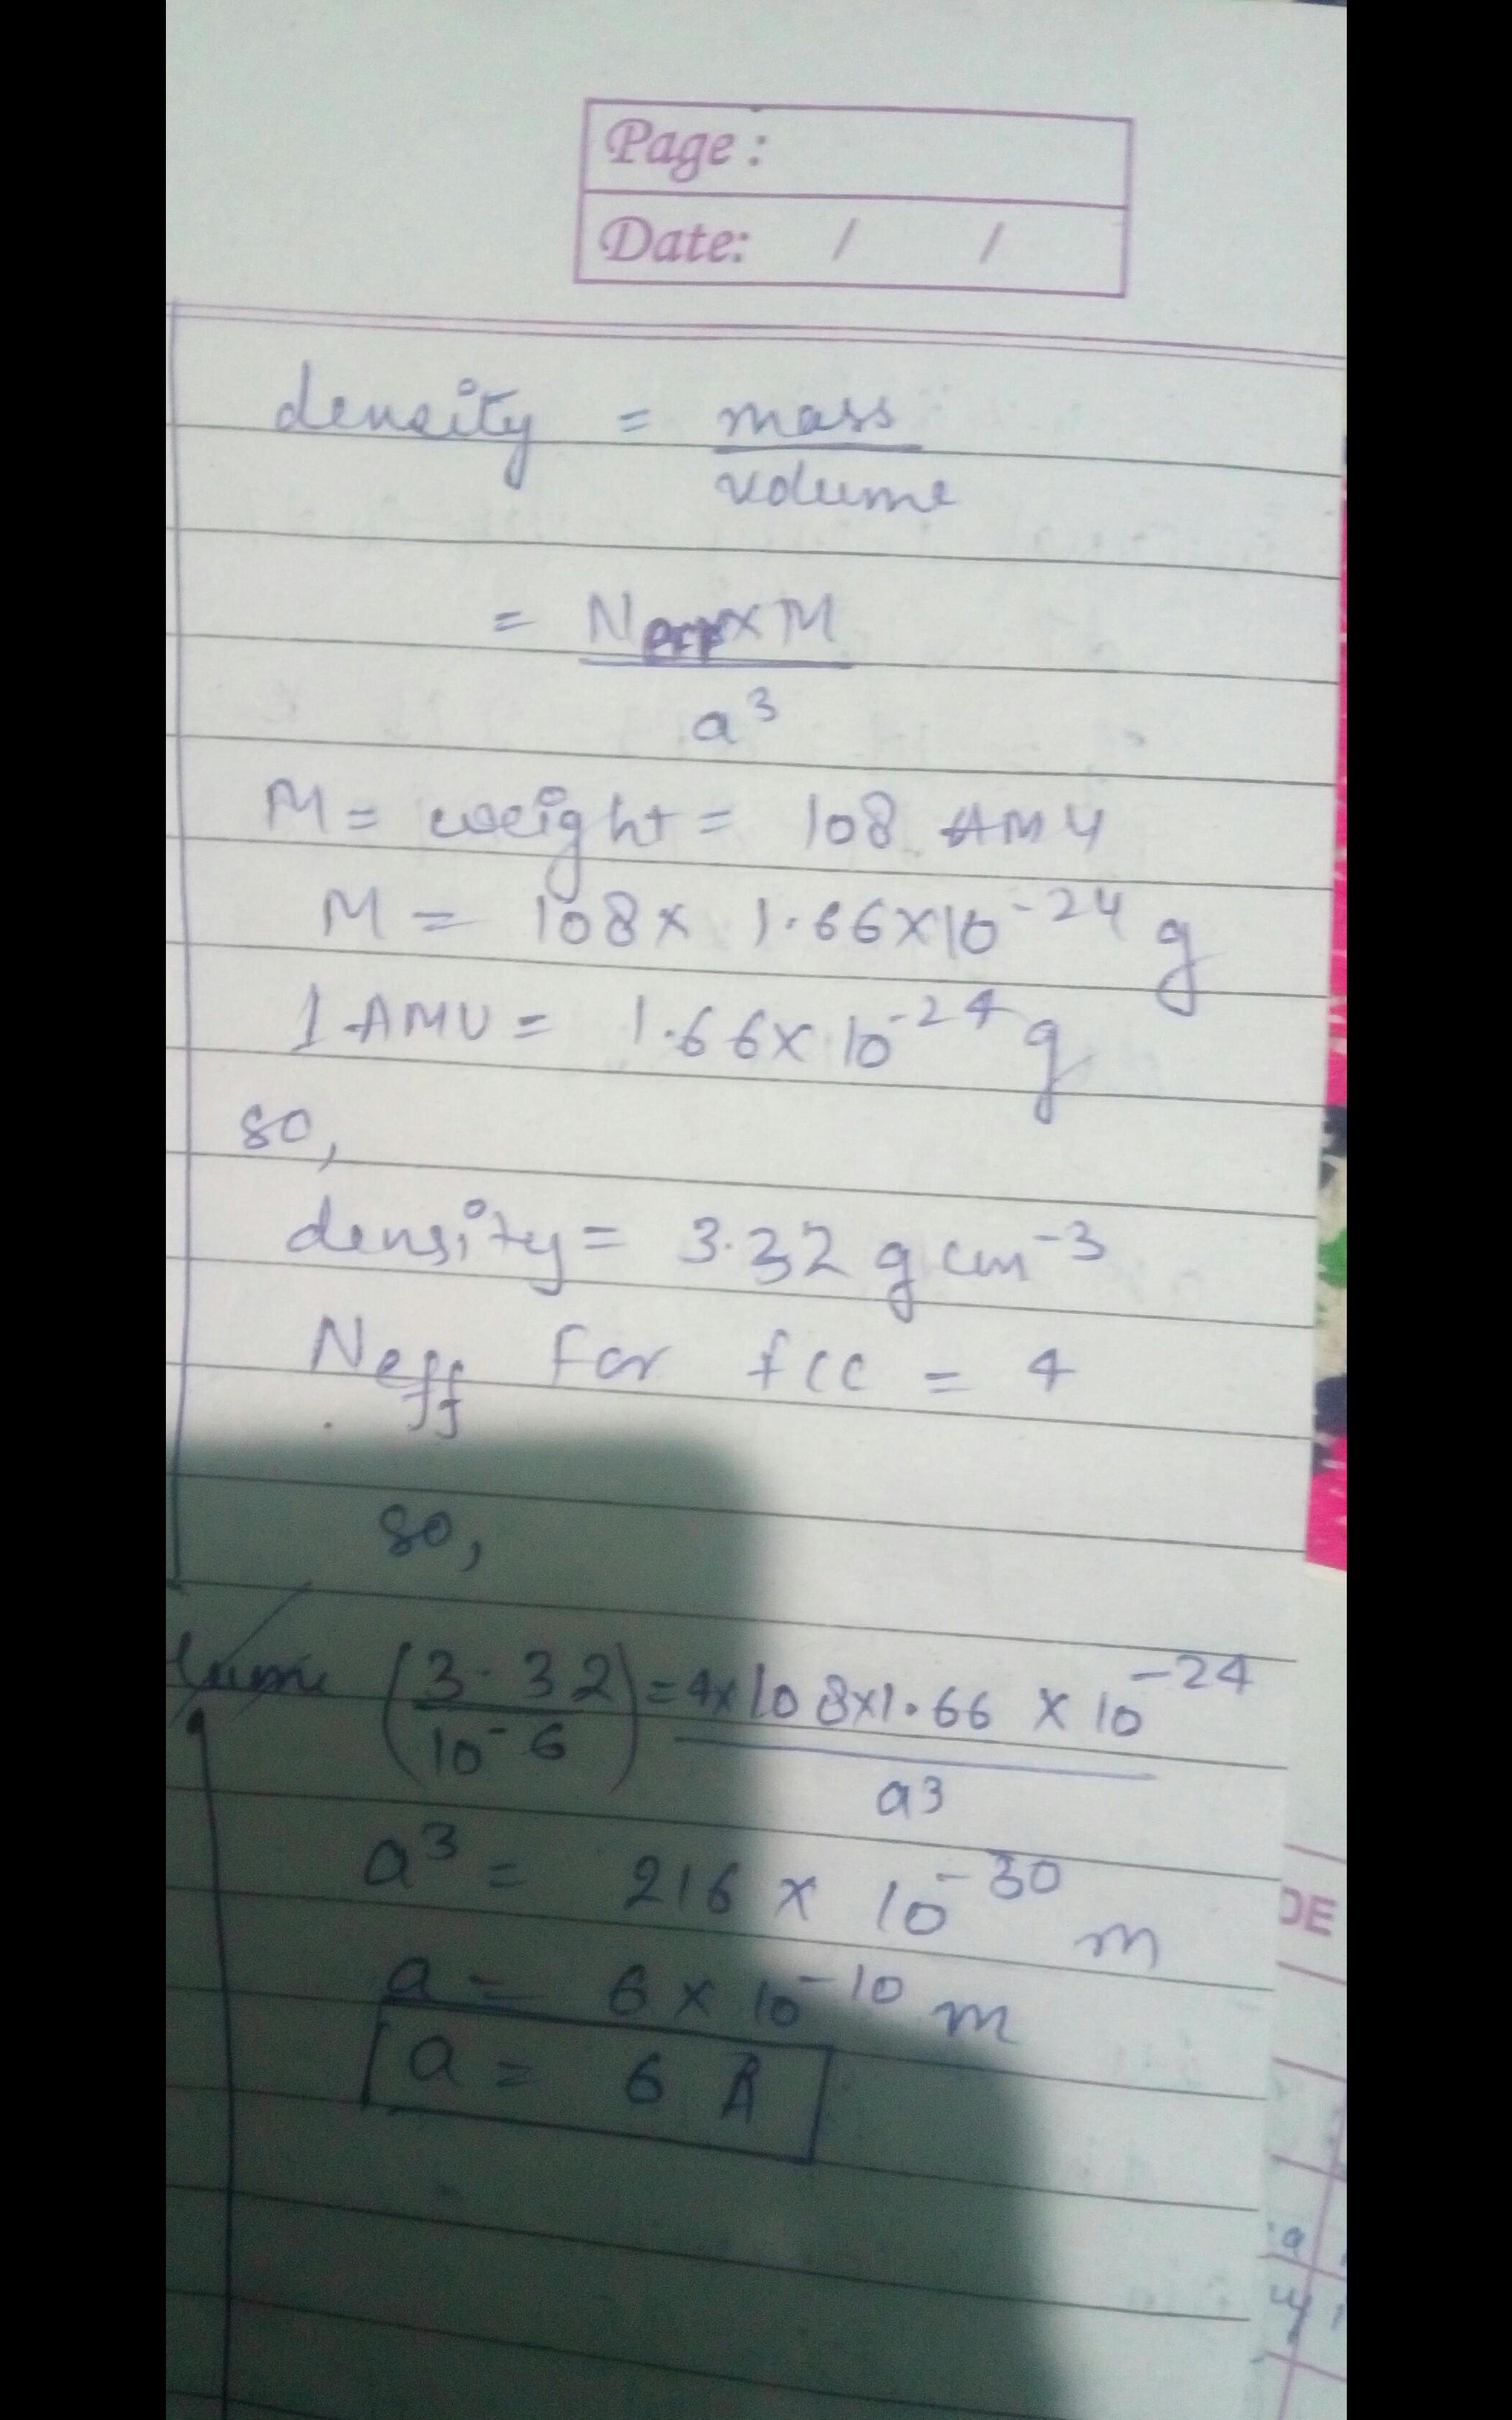 Page :
Date: / /
density = mass
volume
= Neff x M
a³
M = weight = 108 AMU
M = 108 x 1.66 x 10⁻²⁴ g
1 AMU = 1.66 x 10⁻²⁴ g
so,
density = 3.32 g cm⁻³
Neff for fcc = 4
so,
(3.32 / 10⁻⁶) = 4x108x1.66 x 10⁻²⁴
a3
a³ = 216 x 10⁻³⁰ m
a = 6 x 10⁻¹⁰ m
a = 6 Å